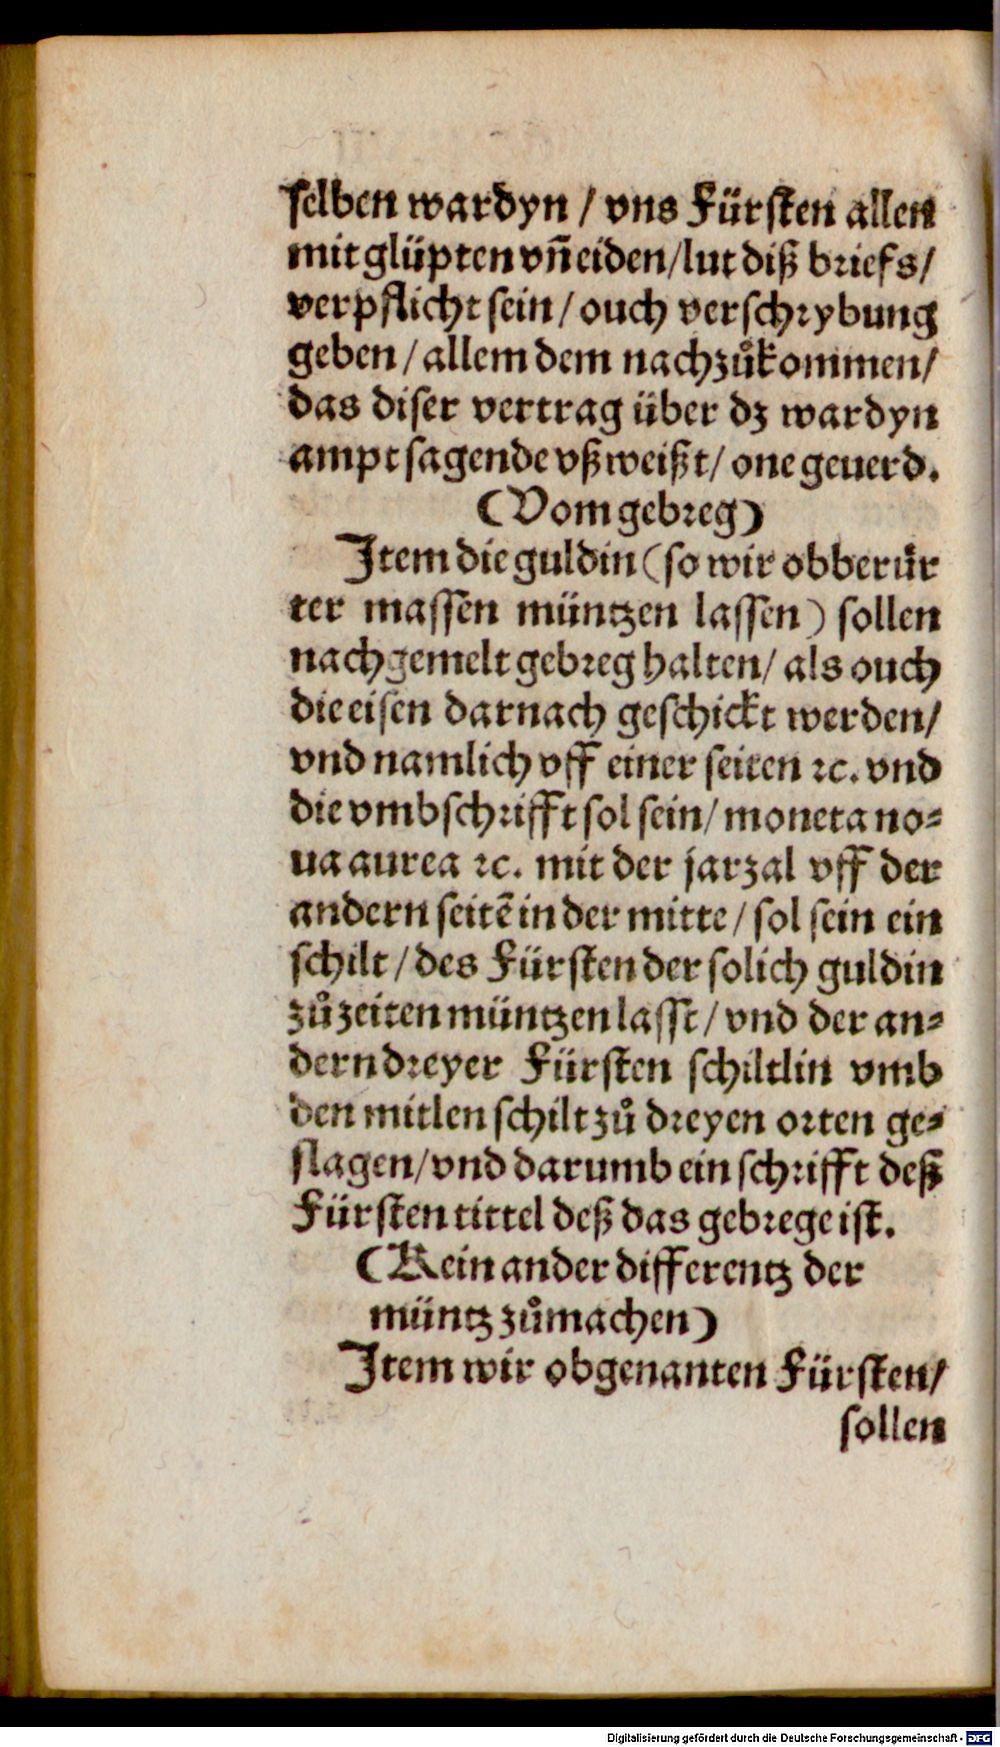 selben wardyn / vns Fürsten allen
mit glüpten vñ eiden / lut diß briefs /
verpflicht sein / ouch verschrybung
geben / allem dem nachzůkommen /
das diser vertrag über dz wardyn
ampt sagende vßweißt / one geuerd.
(Vom gebreg)
Item die guldin (so wir obberůr
ter massen müntzen lassen) sollen
nachgemelt gebreg halten / als ouch
die eisen darnach geschickt werden /
vnd namlich vff einer seiten ꝛc. vnd
die vmbschrifft sol sein / moneta no⸗
ua aurea ꝛc. mit der jarzal vff der
andern seitē in der mitte / sol sein ein
schilt / des Fürsten der solich guldin
zů zeiten müntzen lasst / vnd der an⸗
dern dreyer Fürsten schiltlin vmb
den mitlen schilt zů dreyen orten ge⸗
slagen / vnd darumb ein schrifft deß
Fürsten tittel deß das gebrege ist.
(Kein ander differentz der
müntz zůmachen)
Item wir obgenanten Fürsten /
sollen
Digitalisierung gefördert durch die Deutsche Forschungsgemeinschaft - DFG